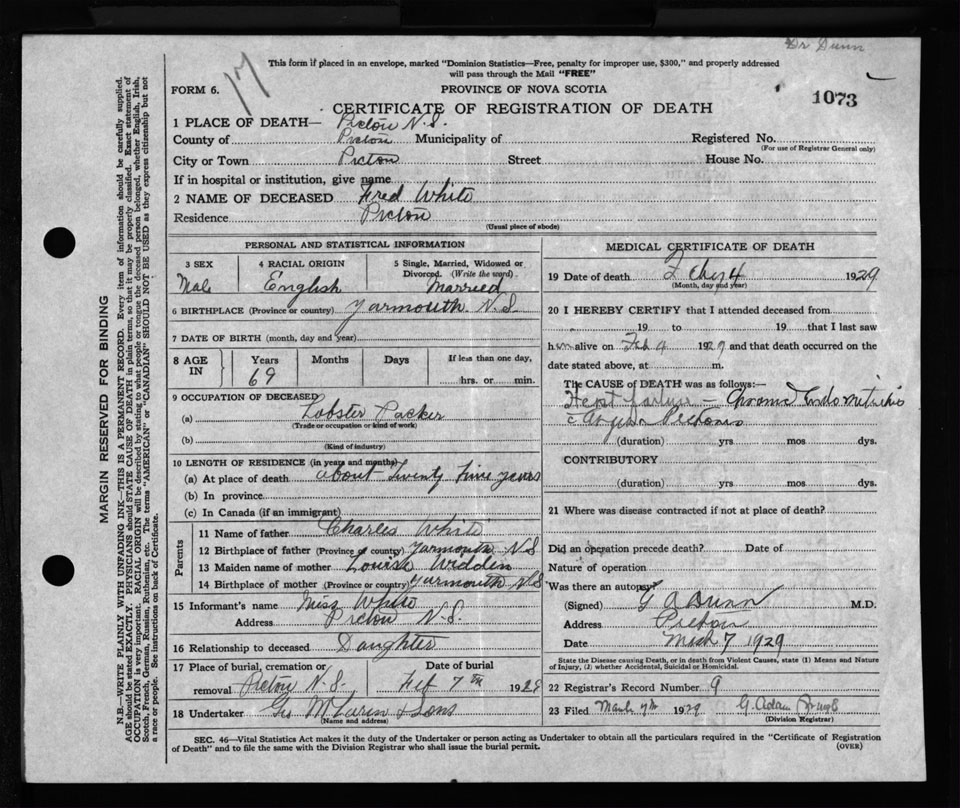 Dr Dunn
17
This form if placed in an envelope, marked "Dominion Statistics—Free, penalty for improper use, $300," and properly addressed
will pass through the Mail "FREE"
FORM 6.
PROVINCE OF NOVA SCOTIA
1073
CERTIFICATE OF REGISTRATION OF DEATH
1 PLACE OF DEATH— Pictou N.S.
County of Pictou Municipality of Registered No.
(For use of Registrar General only)
City or Town Pictou Street House No.
If in hospital or institution, give name
2 NAME OF DECEASED Fred White
Residence Pictou
(Usual place of abode)
PERSONAL AND STATISTICAL INFORMATION
3 SEX 4 RACIAL ORIGIN 5 Single, Married, Widowed or
Divorced. (Write the word)
Male English Married
6 BIRTHPLACE (Province or country) Yarmouth. N.S.
7 DATE OF BIRTH (month, day and year)
8 AGE IN Years Months Days If less than one day,
69 hrs. or min.
9 OCCUPATION OF DECEASED
(a) Lobster Packer
(Trade or occupation or kind of work)
(b)
(Kind of industry)
10 LENGTH OF RESIDENCE (in years and months)
(a) At place of death about Twenty five years
(b) In province
(c) In Canada (if an immigrant)
Parents
11 Name of father Charles White
12 Birthplace of father (Province or country) Yarmouth N S
13 Maiden name of mother Louise
14 Birthplace of mother (Province or country) Yarmouth N S
15 Informant's name Miss White
Address Pictou N.S.
16 Relationship to deceased Daughter
17 Place of burial, cremation or Date of burial
removal Pictou N.S. Feb 7th 1929
18 Undertaker Geo McLaren & Sons
(Name and address)
MEDICAL CERTIFICATE OF DEATH
19 Date of death Feby 4 1929
(Month, day and year)
20 I HEREBY CERTIFY that I attended deceased from
19 to 19 that I last saw
him alive on Feb 4 1929 and that death occurred on the
date stated above, at m.
The CAUSE OF DEATH was as follows:
Heart failure — Chronic
c Angina Pectoris
(duration) yrs mos dys.
CONTRIBUTORY
(duration) yrs mos dys.
21 Where was disease contracted if not at place of death?
Did an operation precede death? Date of
Nature of operation
Was there an autopsy
(Signed) G A Dunn M.D.
Address Pictou
Date March 7 1929
State the Disease causing Death, or in death from Violent Causes, state (1) Means and Nature
of Injury, (2) whether Accidental, Suicidal or Homicidal.
22 Registrar's Record Number 9
23 Filed March 7th 1929 G. Adam
(Division Registrar)
SEC. 46—Vital Statistics Act makes it the duty of the Undertaker or person acting as Undertaker to obtain all the particulars required in the "Certificate of Registration
of Death" and to file the same with the Division Registrar who shall issue the burial permit.
(OVER)
MARGIN RESERVED FOR BINDING
N.B.—WRITE PLAINLY WITH UNFADING INK—THIS IS A PERMANENT RECORD. Every item of information should be carefully supplied.
AGE should be stated EXACTLY. PHYSICIANS should STATE CAUSE OF DEATH in plain terms, so that it may be properly classified. Exact statement of
OCCUPATION is very important. RACIAL ORIGIN will be described by stating to what people or tongue the deceased person belonged, whether English, Irish,
Scotch, French, German, Russian, Ruthenian, etc. The terms "AMERICAN" or "CANADIAN" SHOULD NOT BE USED as they express citizenship but not
a race or people. See instructions on back of Certificate.